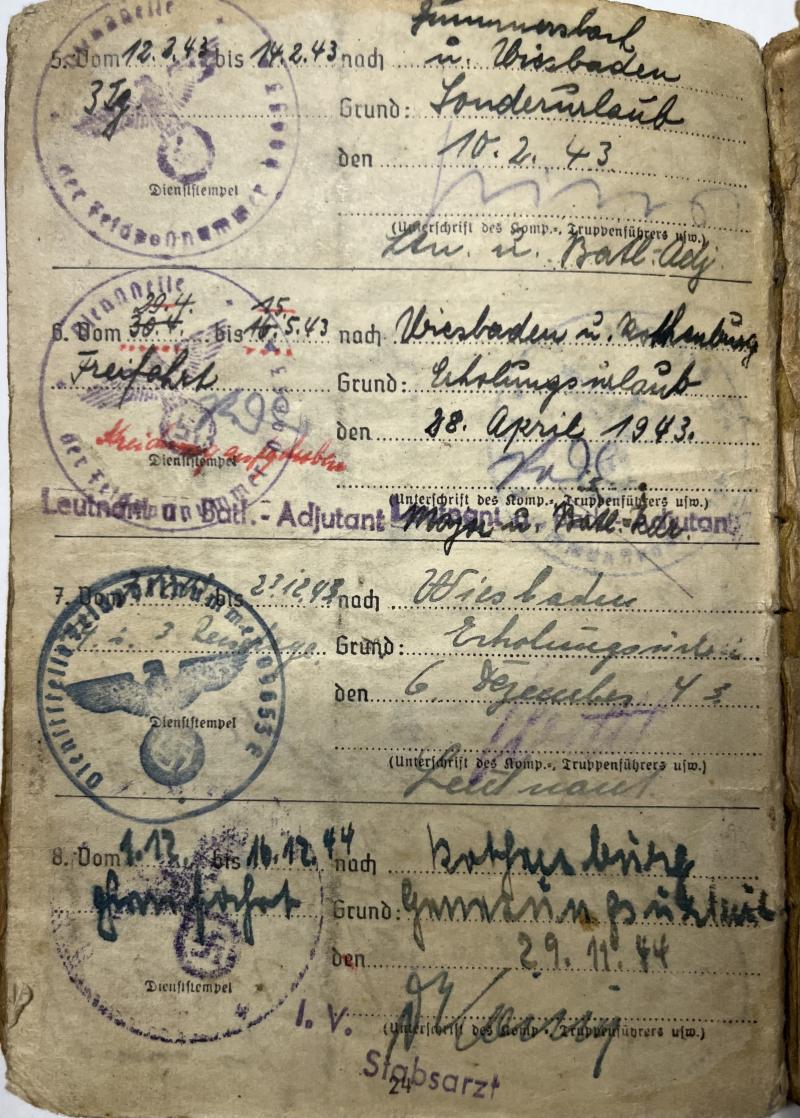 Gummersbach
5. Vom 12.2.43 bis 14.2.43 nach u. Wiesbaden
3 Tg. Grund: Sonderurlaub
den 10.2.43
Dienststempel
(Unterschrift des Komp.-, Truppenführers usw.)
Ltn. u. Batl. Adj
Dienststelle
der Feldpostnummer
29.4. 15.
6. Vom 30.4. bis 16.5.43 nach Wiesbaden u. Rothenburg
Freifahrt Grund: Erholungsurlaub
den 28. April 1943.
Streichung aufgehoben
Dienststempel
(Unterschrift des Komp.-, Truppenführers usw.)
Leutnant u. Batl.-Adjutant Leutnant u. Batl.-Adjutant
Major u. Batl. Kdr.
Dienststelle
der Feldpostnummer
7. Vom bis 23.12.43 nach Wiesbaden
u. 3 Reisetage. Grund: Erholungsurlaub
den 6. Dezember 43
Dienststempel
(Unterschrift des Komp.-, Truppenführers usw.)
Leutnant
Dienststelle Feldpostnummer 09653E
8. Vom 1.12. bis 16.12.44 nach Rothenburg
Grund: Genesungsurlaub
den 29.11.44
Dienststempel
I. V. (Unterschrift des Komp.-, Truppenführers usw.)
Stabsarzt
24